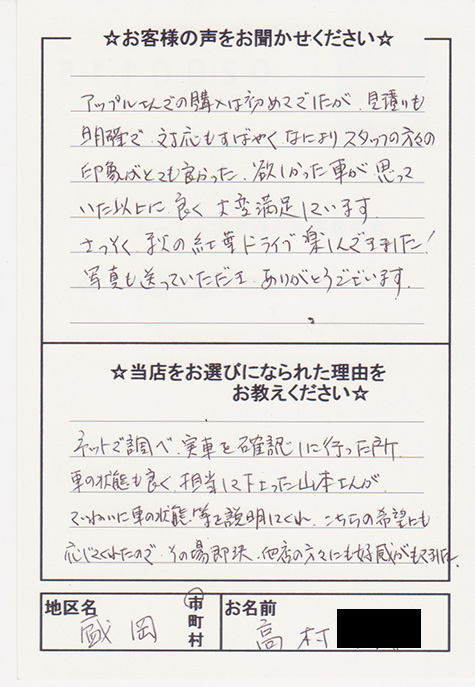 ☆お客様の声をお聞かせください☆
アップルさんでの購入は初めてでしたが、見積りも
明確で、対応もすばやく なにより スタッフの方々の
印象がとても良かった。欲しかった車が 思って
いた以上に 良く 大変満足しています。
さっそく 秋の紅葉ドライブ 楽しんできました!
写真も送っていただき、ありがとうございます。
☆当店をお選びになられた理由を
お教えください☆
ネットで調べ、実車を確認しに行った所
車の状態も良く 担当して下さった山本さんが
ていねいに車の状態等を説明してくれ、こちらの希望にも
応じてくれたので、その場即決、他店の方々にも好感がもてました。
地区名 盛岡 市 町 村 お名前 高村